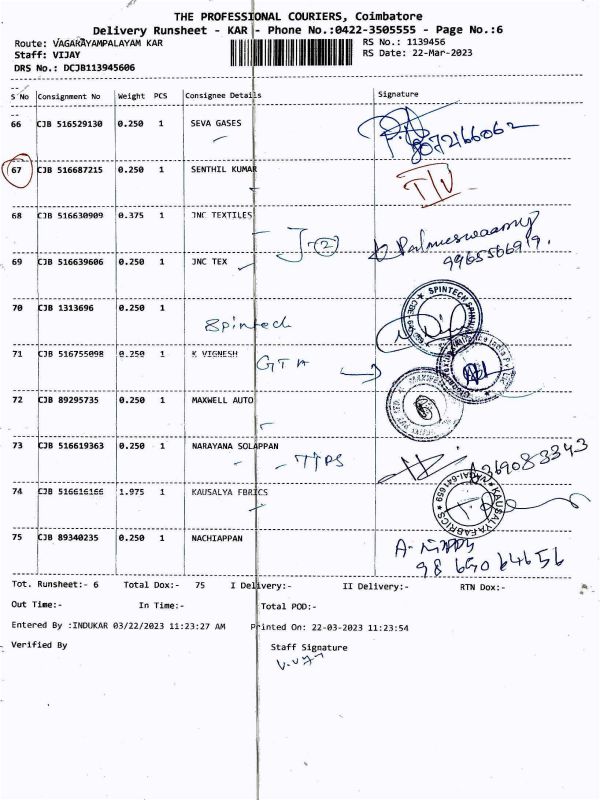 THE PROFESSIONAL COURIERS, Coimbatore
Delivery Runsheet - KAR - Phone No.:0422-3505555 - Page No.:6
Route: VAGARAYAMPALAYAM KAR RS No.: 1139456
Staff: VIJAY RS Date: 22-Mar-2023
DRS No.: DCJB113945606
S No Consignment No Weight PCS Consignee Details Signature
66 CJB 516529130 0.250 1 SEVA GASES
8072166062
67 CJB 516687215 0.250 1 SENTHIL KUMAR
68 CJB 516630909 0.375 1 JNC TEXTILES
J-2
69 CJB 516639606 0.250 1 JNC TEX
9965566919.
70 CJB 1313696 0.250 1
Spintech
SPINTECH
71 CJB 516755098 0.250 1 K VIGNESH
GTA
72 CJB 89295735 0.250 1 MAXWELL AUTO
73 CJB 516619363 0.250 1 NARAYANA SOLAPPAN
74 CJB 516616166 1.975 1 KAUSALYA FBRICS
KAUSALYA FABRICS
75 CJB 89340235 0.250 1 NACHIAPPAN
98 650 64656
Tot. Runsheet:- 6 Total Dox:- 75 I Delivery:- II Delivery:- RTN Dox:-
Out Time:- In Time:- Total POD:-
Entered By :INDUKAR 03/22/2023 11:23:27 AM Printed On: 22-03-2023 11:23:54
Verified By Staff Signature